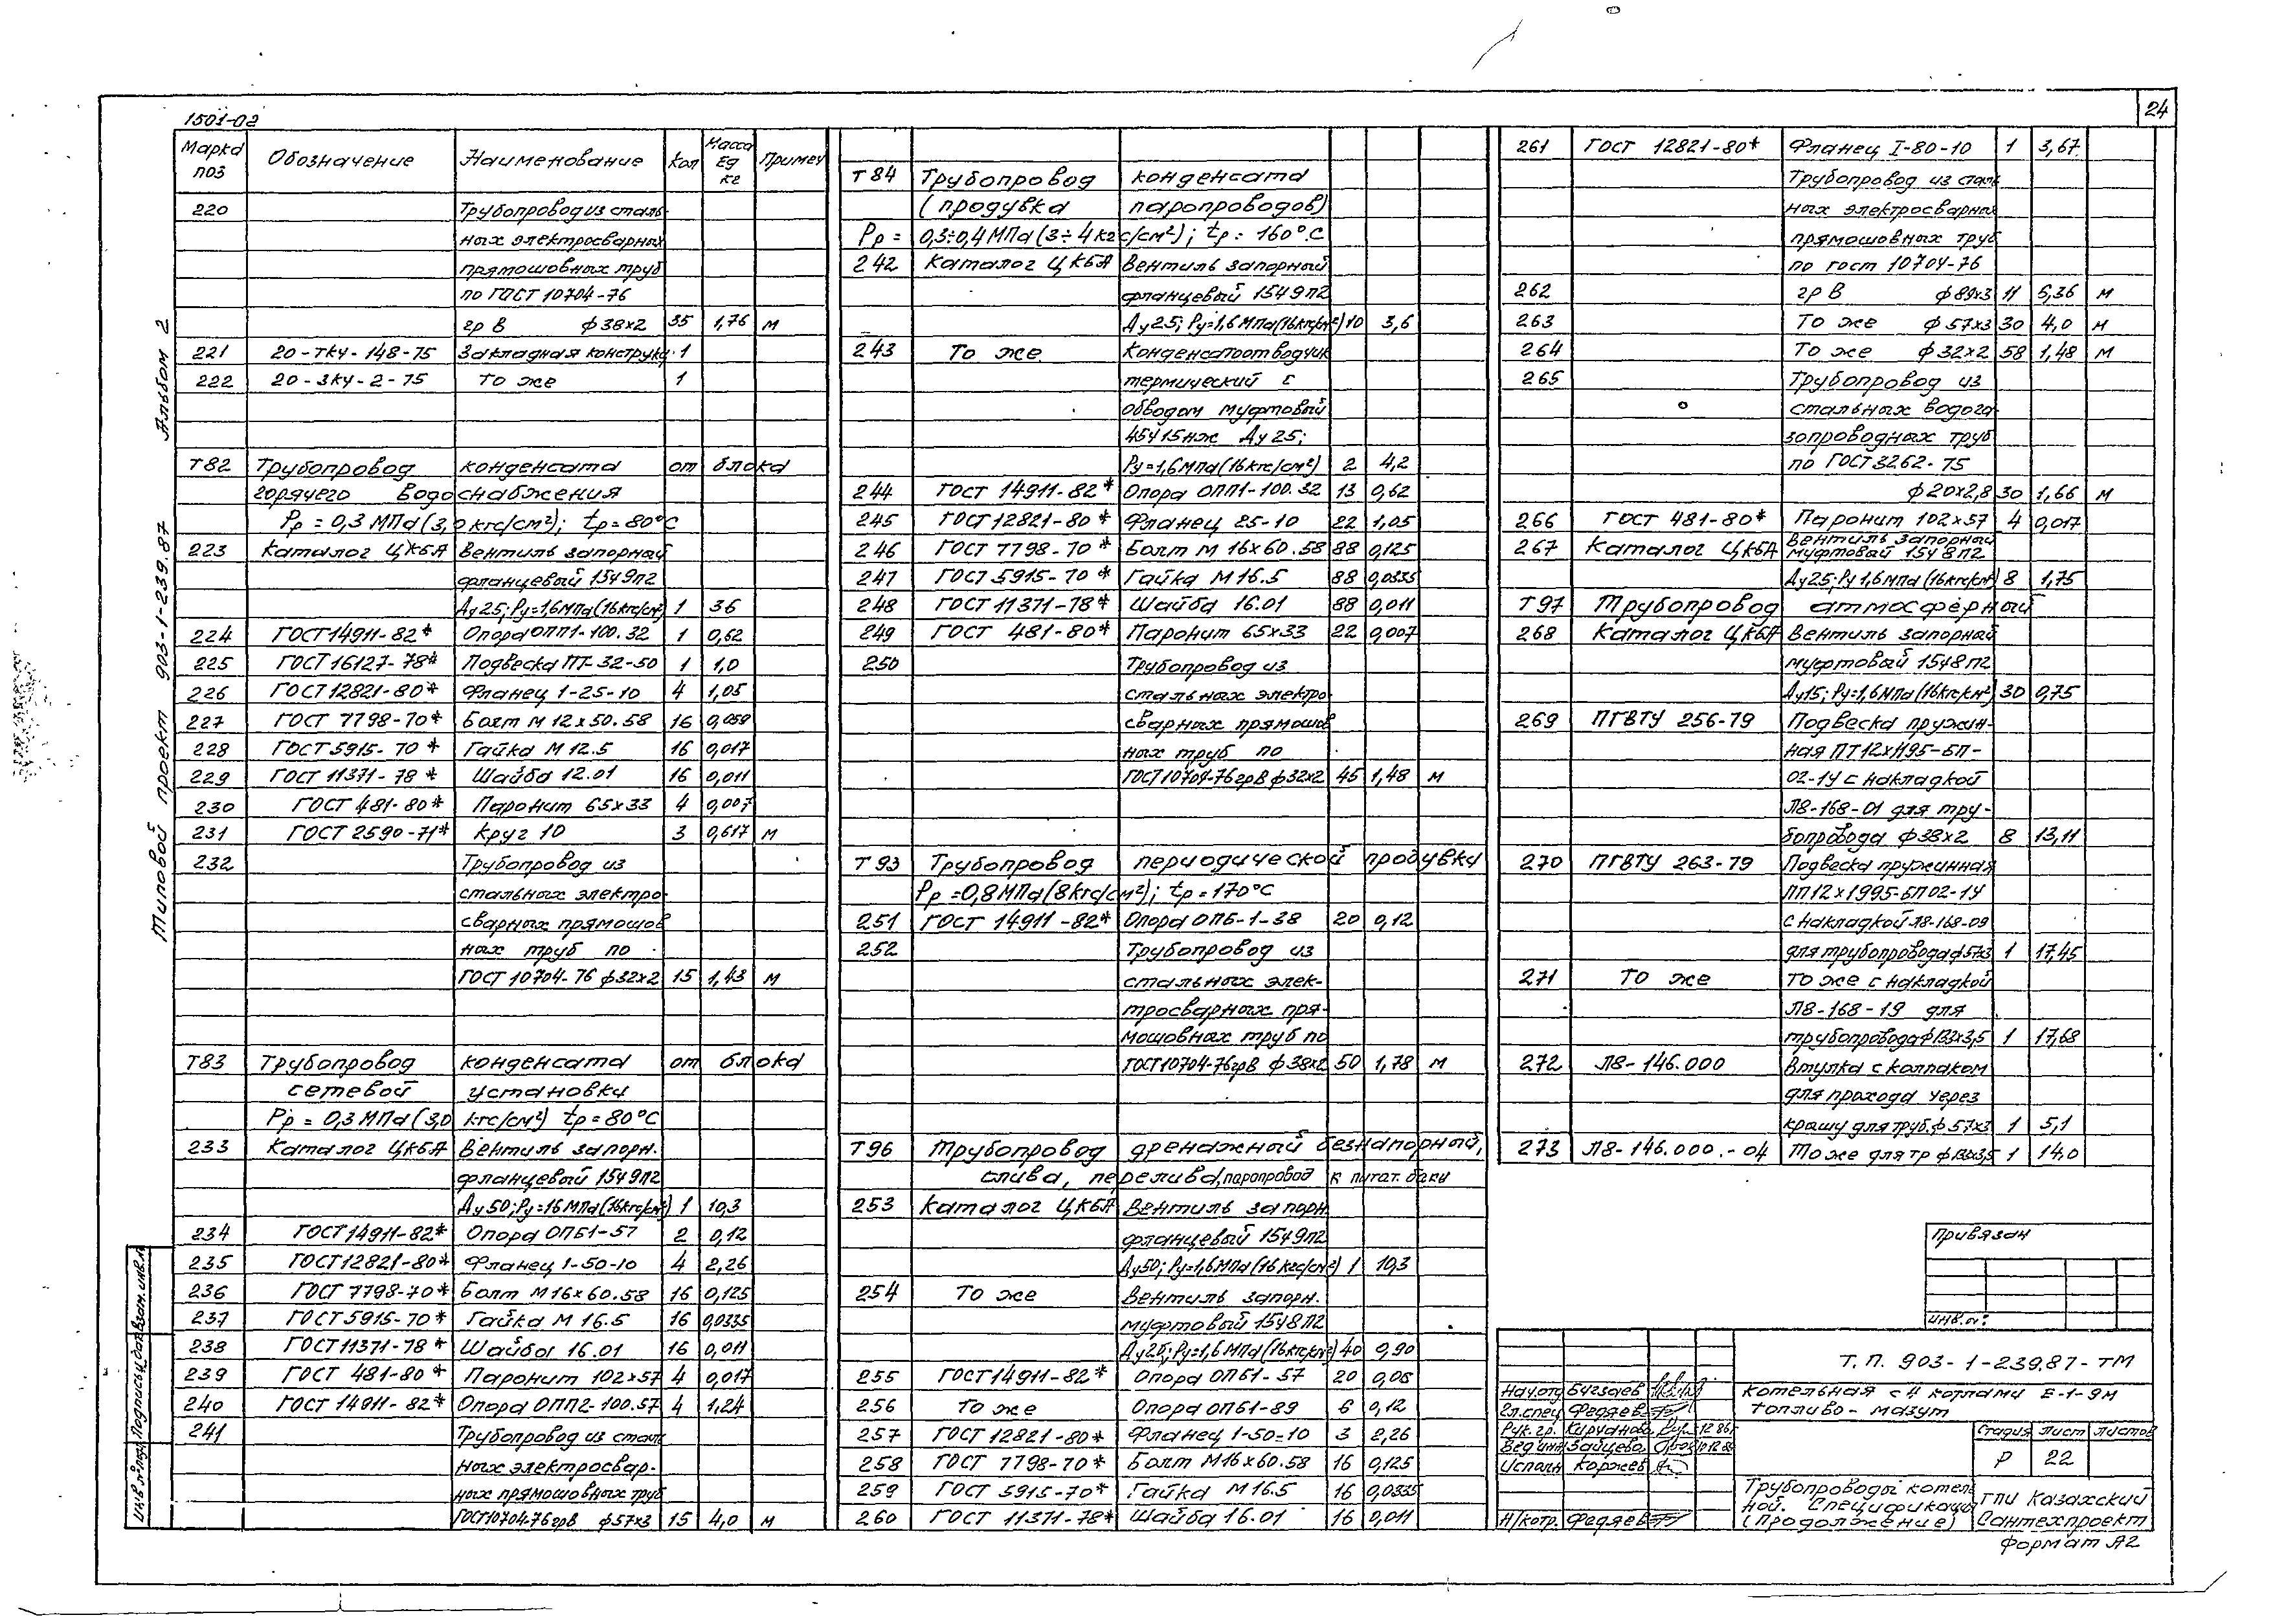 24
1501-02
Альбом 2
Типовой проект 903-1-239.87
Марка поз Обозначение Наименование Кол Масса Ед кг Примеч
220 Трубопровод из сталь-
ных электросварных
прямошовных труб
по ГОСТ 10704-76
гр В ф38х2 35 1,76 м
221 20-ТКЧ-148-75 Закладная конструкц. 1
222 20-ЗКЧ-2-75 То же 1
Т82 Трубопровод конденсата от блока
горячего водоснабжения
Рр = 0,3 МПа (3,0 кгс/см²); tр = 80°С
223 Каталог ЦКБА Вентиль запорный
фланцевый 15ч9п2
Ду25; Ру=1,6МПа(16кгс/см²) 1 36
224 ГОСТ 14911-82* Опора ОПП1-100.32 1 0,62
225 ГОСТ 16127-78* Подвеска ПГ-32-50 1 1,0
226 ГОСТ 12821-80* Фланец 1-25-10 4 1,05
227 ГОСТ 7798-70* Болт М 12х50.58 16 0,059
228 ГОСТ 5915-70* Гайка М 12.5 16 0,017
229 ГОСТ 11371-78* Шайба 12.01 16 0,011
230 ГОСТ 481-80* Паронит 65х33 4 0,007
231 ГОСТ 2590-71* Круг 10 3 0,617 м
232 Трубопровод из
стальных электро-
сварных прямошов
ных труб по
ГОСТ 10704-76 ф32х2 15 1,43 м
Т83 Трубопровод конденсата от блока
сетевой установки
Рр = 0,3 МПа (3,0 кгс/см²) tр = 80°С
233 Каталог ЦКБА Вентиль запорн.
фланцевый 15ч9п2
Ду50; Ру=16МПа(16кгс/см²) 1 10,3
234 ГОСТ 14911-82* Опора ОПБ1-57 2 0,12
235 ГОСТ 12821-80* Фланец 1-50-10 4 2,26
236 ГОСТ 7798-70* Болт М16х60.58 16 0,125
237 ГОСТ 5915-70* Гайка М 16.5 16 0,0335
238 ГОСТ 11371-78* Шайба 16.01 16 0,011
239 ГОСТ 481-80* Паронит 102х57 4 0,017
240 ГОСТ 14911-82* Опора ОПП2-100.57 4 1,24
241 Трубопровод из сталь
ных электросвар-
ных прямошовных труб
ГОСТ10704-76 грВ ф57х3 15 4,0 м
Т84 Трубопровод конденсата
(продувка паропроводов)
Рр = 0,3÷0,4 МПа (3÷4 кгс/см²); tр = 160°С
242 Каталог ЦКБА Вентиль запорный
фланцевый 15ч9п2
Ду25; Ру=1,6МПа(16кгс/см²) 10 3,6
243 То же Конденсатоотводчик
термический с
обводом муфтовый
45ч15нж Ду25;
Ру=1,6МПа(16кгс/см²) 2 4,2
244 ГОСТ 14911-82* Опора ОПП1-100.32 13 0,62
245 ГОСТ 12821-80* Фланец 25-10 22 1,05
246 ГОСТ 7798-70* Болт М 16х60.58 88 0,125
247 ГОСТ 5915-70* Гайка М16.5 88 0,0335
248 ГОСТ 11371-78* Шайба 16.01 88 0,011
249 ГОСТ 481-80* Паронит 65х33 22 0,007
250 Трубопровод из
стальных электро-
сварных прямошов
ных труб по
ГОСТ10704-76 грВ ф32х2 45 1,48 м
Т93 Трубопровод периодической продувки
Рр = 0,8 МПа (8кгс/см²); tр = 170°С
251 ГОСТ 14911-82* Опора ОПБ-1-38 20 0,12
252 Трубопровод из
стальных элек-
тросварных пря-
мошовных труб по
ГОСТ10704-76грВ ф38х2 50 1,78 м
Т96 Трубопровод дренажный безнапорный,
слива, перелива, паропровод к питат. баку
253 Каталог ЦКБА Вентиль запорн
фланцевый 15ч9п2
Ду50; Ру=1,6МПа(16кгс/см²) 1 10,3
254 То же Вентиль запорн.
муфтовый 15ч8п2
Ду25; Ру=1,6МПа(16кгс/см²) 40 0,90
255 ГОСТ 14911-82* Опора ОПБ1-57 20 0,05
256 То же Опора ОПБ1-89 6 0,12
257 ГОСТ 12821-80* Фланец 1-50-10 3 2,26
258 ГОСТ 7798-70* Болт М16х60.58 16 0,125
259 ГОСТ 5915-70* Гайка М16.5 16 0,0335
260 ГОСТ 11371-78* Шайба 16.01 16 0,011
261 ГОСТ 12821-80* Фланец I-80-10 1 3,67
Трубопровод из сталь
ных электросварных
прямошовных труб
по ГОСТ 10704-76
262 гр В ф89х3 11 6,36 м
263 То же ф57х3 30 4,0 м
264 То же ф32х2 58 1,48 м
265 Трубопровод из
стальных водога-
зопроводных труб
по ГОСТ 3262-75
ф20х2,8 30 1,66 м
266 ГОСТ 481-80* Паронит 102х57 4 0,017
267 Каталог ЦКБА Вентиль запорный
муфтовый 15ч8п2
Ду25; Ру 1,6МПа(16кгс/см²) 8 1,75
Т97 Трубопровод атмосферный
268 Каталог ЦКБА Вентиль запорный
муфтовый 15ч8п2
Ду15; Ру=1,6МПа(16кгс/см²) 30 0,75
269 ПГВТУ 256-79 Подвеска пружин-
ная ПТ12х1195-БП-
02-1У с накладкой
Л8-168-01 для тру-
бопровода ф38х2 8 13,11
270 ПГВТУ 263-79 Подвеска пружинная
ПП12х1995-БП02-1У
с накладкой Л8-168-09
для трубопровода ф57х3 1 17,45
271 То же То же с накладкой
Л8-168-19 для
трубопровода ф133х3,5 1 17,68
272 Л8-146.000 Втулка с колпаком
для прохода через
крышу для труб. ф57х3 1 5,1
273 Л8-146.000.-04 То же для тр ф133х3,5 1 14,0
Привязан
Инв.№
Т.П. 903-1-239.87-ТМ
Котельная с 4 котлами Е-1-9М
Топливо - мазут
Нач.отд Бугзаев
Гл.спец Федяев
Рук.гр. Кирданова 12.86
Вед.инж Зайцева 12.86
Исполн Коржев
Н/контр. Федяев
Стадия Лист Листов
Р 22
Трубопроводы котель
ной. Спецификация
(продолжение)
ГПИ Казахский
Сантехпроект
Формат А2
Инв.№ подл. Подпись и дата Взам.инв.№